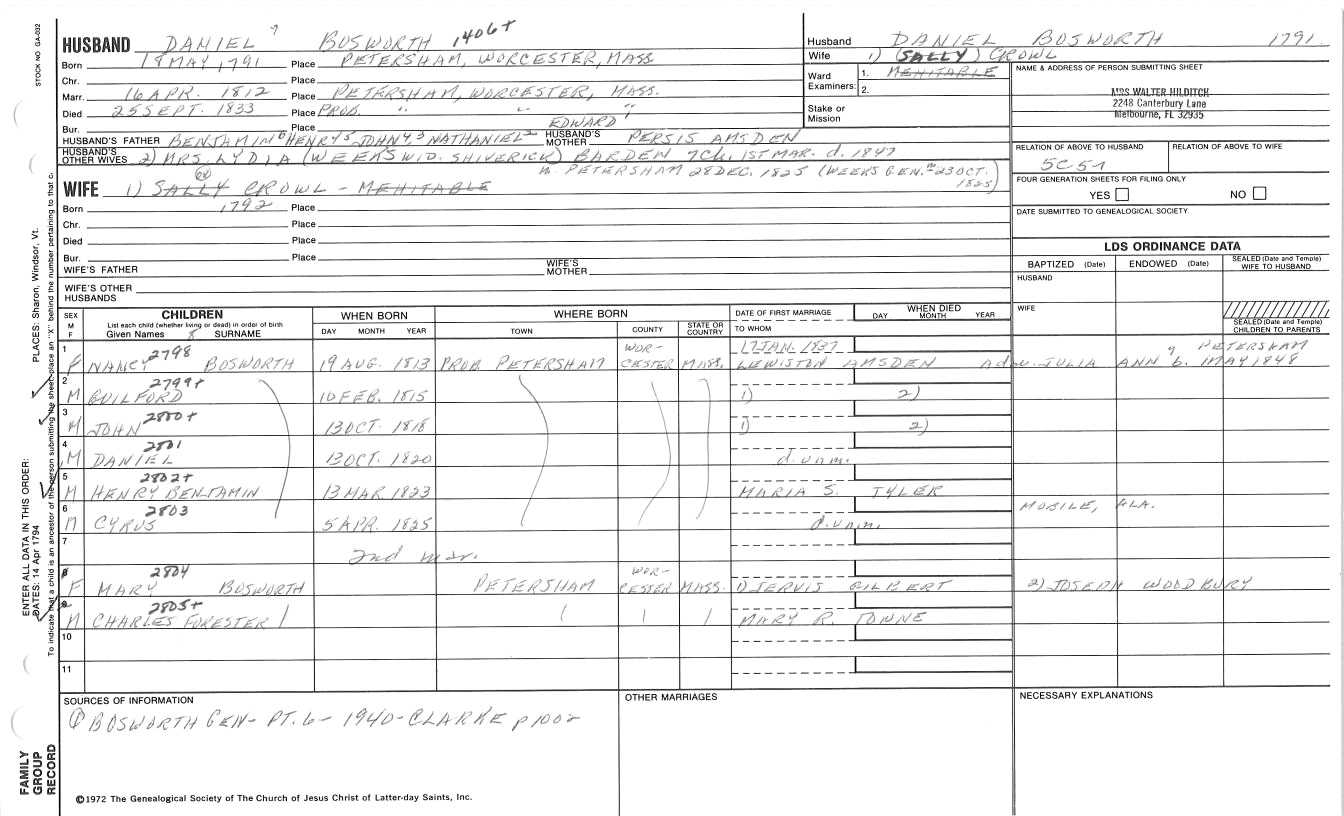 STOCK NO GA-032
HUSBAND DANIEL 7 BOSWORTH 1406+
Born 18 MAY, 1791 Place PETERSHAM, WORCESTER, MASS
Chr. Place
Marr. 16 APR. 1812 Place PETERSHAM, WORCESTER, MASS.
Died 25 SEPT. 1833 Place PROB. " " "
Bur. Place EDWARD 1
HUSBAND'S FATHER BENJAMIN 6 HENRY 5 JOHN 4, 3 NATHANIEL 2 HUSBAND'S MOTHER PERSIS AMSDEN
HUSBAND'S OTHER WIVES 2) MRS. LYDIA (WEEKS WID. SHIVERICK) BARDEN 7CH. 1ST MAR. d. 1847
m. PETERSHAM 28 DEC. 1825 (WEEKS GEN. - m 23 OCT. 1825)
WIFE 1) SALLY CROWL - MEHITABLE
Born 1792 Place
Chr. Place
Died Place
Bur. Place
WIFE'S FATHER WIFE'S MOTHER
WIFE'S OTHER HUSBANDS
Husband DANIEL BOSWORTH 1791
Wife 1) (SALLY) CROWL
Ward Examiners: 1. MEHITABLE
2.
Stake or Mission
NAME & ADDRESS OF PERSON SUBMITTING SHEET
MRS WALTER HILDITCH
2248 Canterbury Lane
Melbourne, FL 32935
RELATION OF ABOVE TO HUSBAND RELATION OF ABOVE TO WIFE
5C 5
FOUR GENERATION SHEETS FOR FILING ONLY
YES NO
DATE SUBMITTED TO GENEALOGICAL SOCIETY
LDS ORDINANCE DATA
BAPTIZED (Date) ENDOWED (Date) SEALED (Date and Temple) WIFE TO HUSBAND
HUSBAND
WIFE
SEALED (Date and Temple) CHILDREN TO PARENTS
SEX M F CHILDREN List each child (whether living or dead) in order of birth Given Names 8 SURNAME
WHEN BORN DAY MONTH YEAR
WHERE BORN TOWN COUNTY STATE OR COUNTRY
DATE OF FIRST MARRIAGE TO WHOM
WHEN DIED DAY MONTH YEAR
1 2798 WOR- 17 JAN. 1837 PETERSHAM
F NANCY BOSWORTH 19 AUG. 1813 PROB PETERSHAM CESTER MASS. LEWISTON AMSDEN Adw. JULIA ANN 9 b. 1 MAY 1848
2 2799+
M GUILFORD 10 FEB. 1815 1) 2)
3 2800+
M JOHN 13 OCT. 1818 1) 2)
4 2801
M DANIEL 13 OCT. 1820 d. unm.
5 2802+
M HENRY BENJAMIN 13 MAR 1823 MARIA S. TYLER
6 2803 MOBILE, ALA.
M CYRUS 5 APR. 1825 d. unm.
7 2nd mar.
8 2804 WOR-
F MARY BOSWORTH PETERSHAM CESTER MASS. 1) JERVIS GILBERT 2) JOSEPH WOODBURY
9 2805+
M CHARLES FORESTER MARY R. TOWNE
10
11
SOURCES OF INFORMATION
BOSWORTH GEN - PT. 6 - 1940 - CLARKE p 1002
OTHER MARRIAGES
NECESSARY EXPLANATIONS
©1972 The Genealogical Society of The Church of Jesus Christ of Latter-day Saints, Inc.
FAMILY GROUP RECORD
ENTER ALL DATA IN THIS ORDER:
DATES: 14 Apr 1794
PLACES: Sharon, Windsor, Vt.
To indicate that a child is an ancestor of the person submitting the sheet, place an "X" behind the number pertaining to that c.